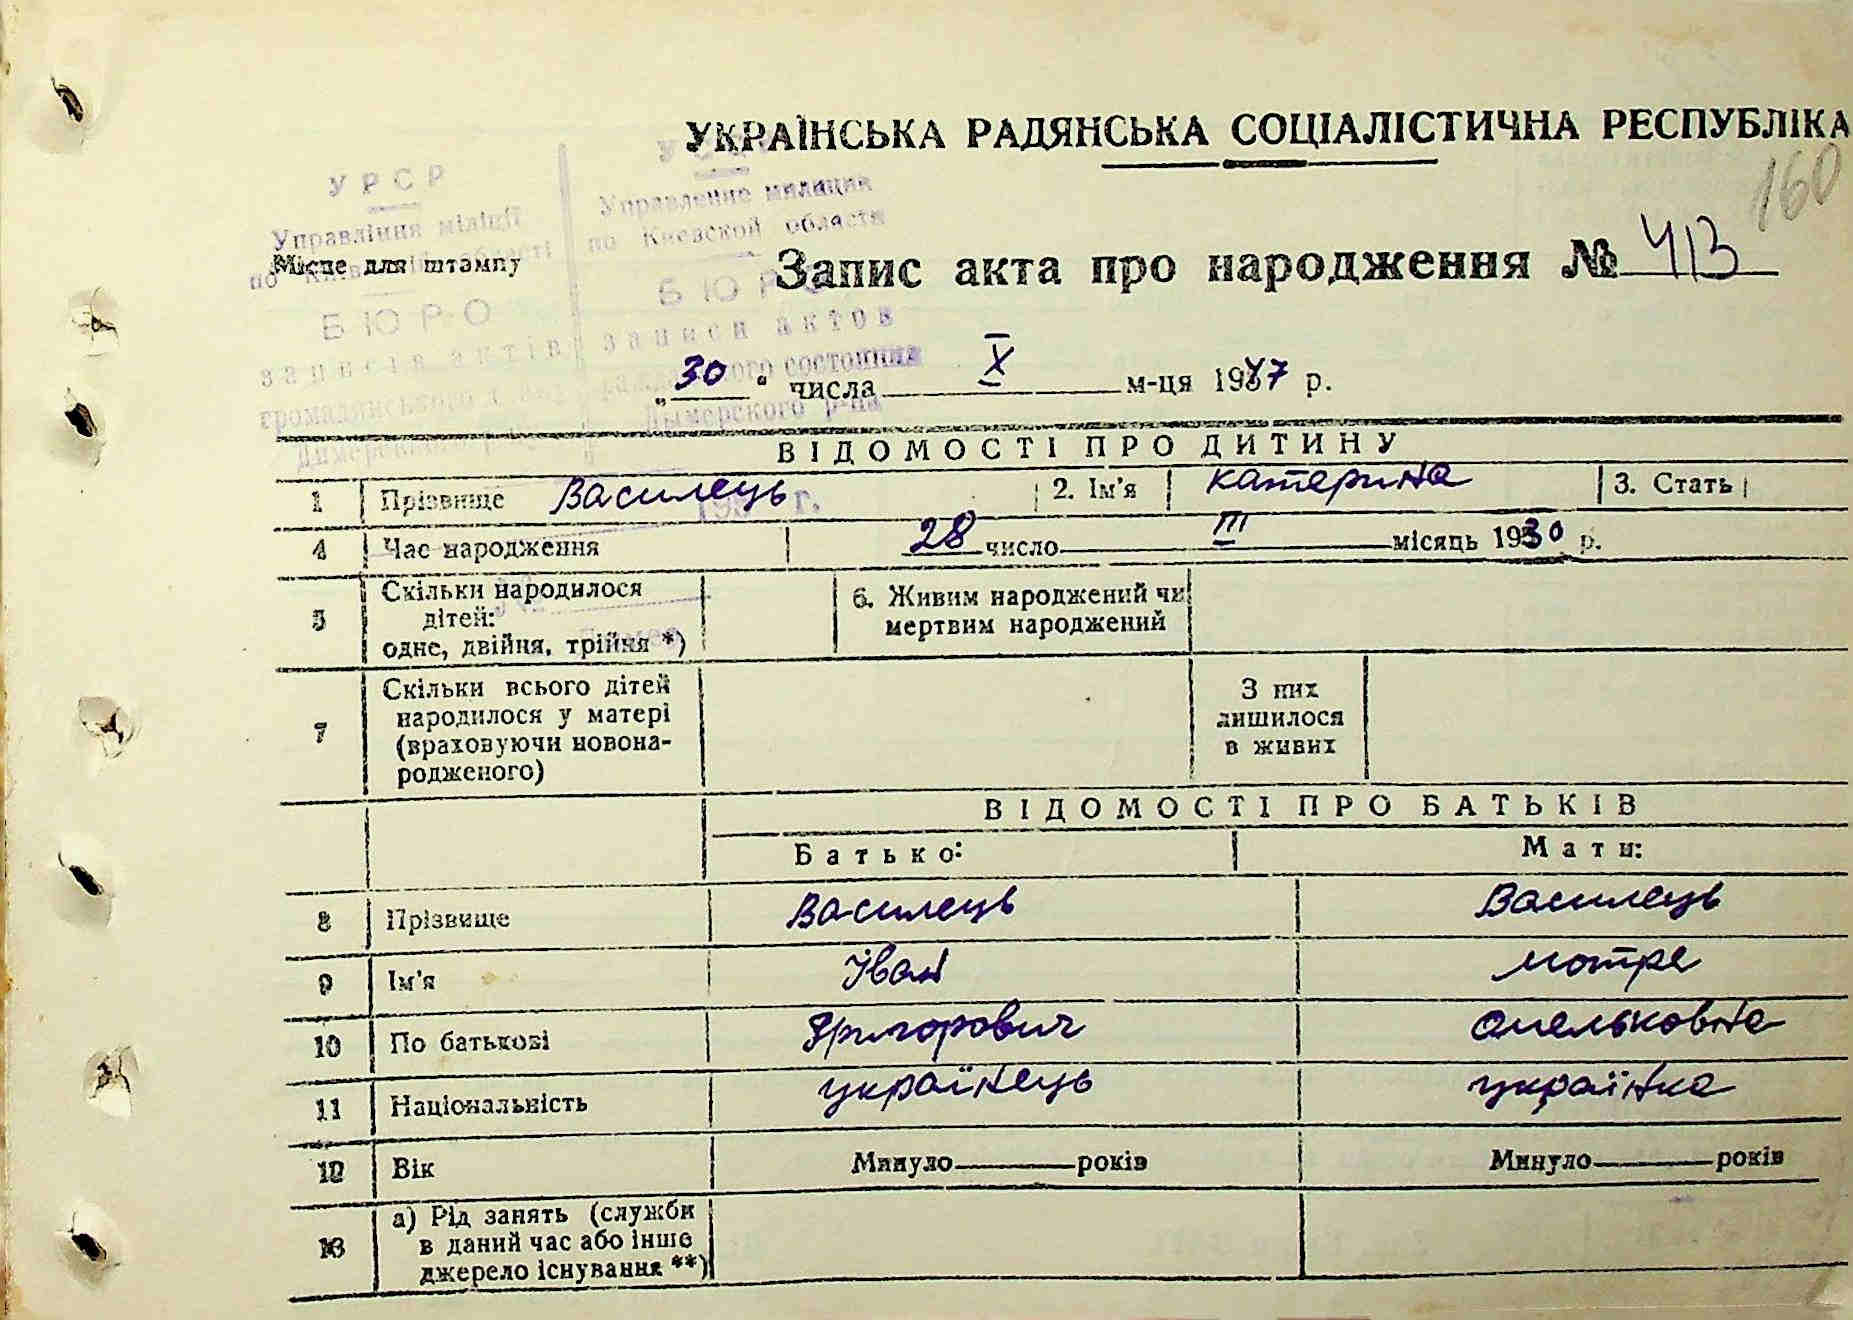 УКРАЇНСЬКА РАДЯНСЬКА СОЦІАЛІСТИЧНА РЕСПУБЛІКА
160
УРСР
Управління міліції
по Київській області
БЮРО
записів актів
громадянського
Управление милиции
по Киевской области
БЮРО
записи актов
гражданского состояния
Дымерского р-на
Місце для штампу
Запис акта про народження № 413
„30“ числа X м-ця 1947 р.
ВІДОМОСТІ ПРО ДИТИНУ
1 Прізвище Василець 2. Ім'я Катерина 3. Стать
4 Час народження 28 число III місяць 1930 р.
5 Скільки народилося дітей: одне, двійня, трійня *) 6. Живим народжений чи мертвим народжений
7 Скільки всього дітей народилося у матері (враховуючи новона-родженого) З них лишилося в живих
ВІДОМОСТІ ПРО БАТЬКІВ
Батько: Мати:
8 Прізвище Василець Василець
9 Ім'я Іван Мотря
10 По батькові Григорович Омельковна
11 Національність українець українка
12 Вік Минуло років Минуло років
13 а) Рід занять (служби в даний час або інше джерело існування **)